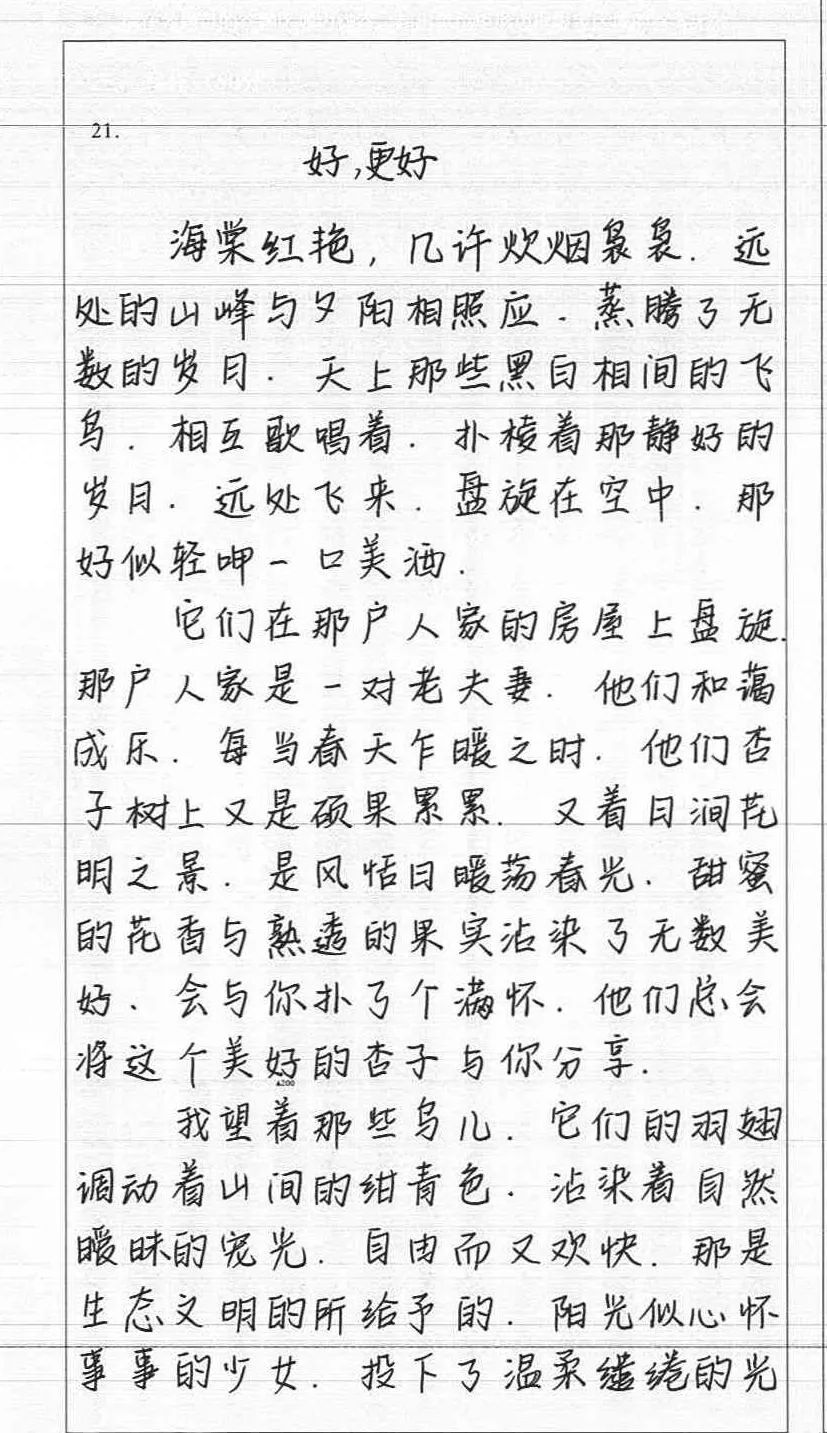 21.
好,更好
海棠红艳,几许炊烟袅袅.远
处的山峰与夕阳相照应.蒸腾了无
数的岁月.天上那些黑白相间的飞
鸟.相互歌唱着.扑棱着那静好的
岁月.远处飞来.盘旋在空中.那
好似轻呷一口美酒.
它们在那户人家的房屋上盘旋.
那户人家是一对老夫妻.他们和蔼
成乐.每当春天乍暖之时.他们杏
子树上又是硕果累累.又着日润花
明之景.是风恬日暖荡春光.甜蜜
的花香与熟透的果实沾染了无数美
好.会与你扑了个满怀.他们总会
将这个美好的杏子与你分享.
▲200
我望着那些鸟儿.它们的羽翅
调动着山间的绀青色.沾染着自然
暧昧的宠光.自由而又欢快.那是
生态文明的所给予的.阳光似心怀
事事的少女.投下了温柔缱绻的光